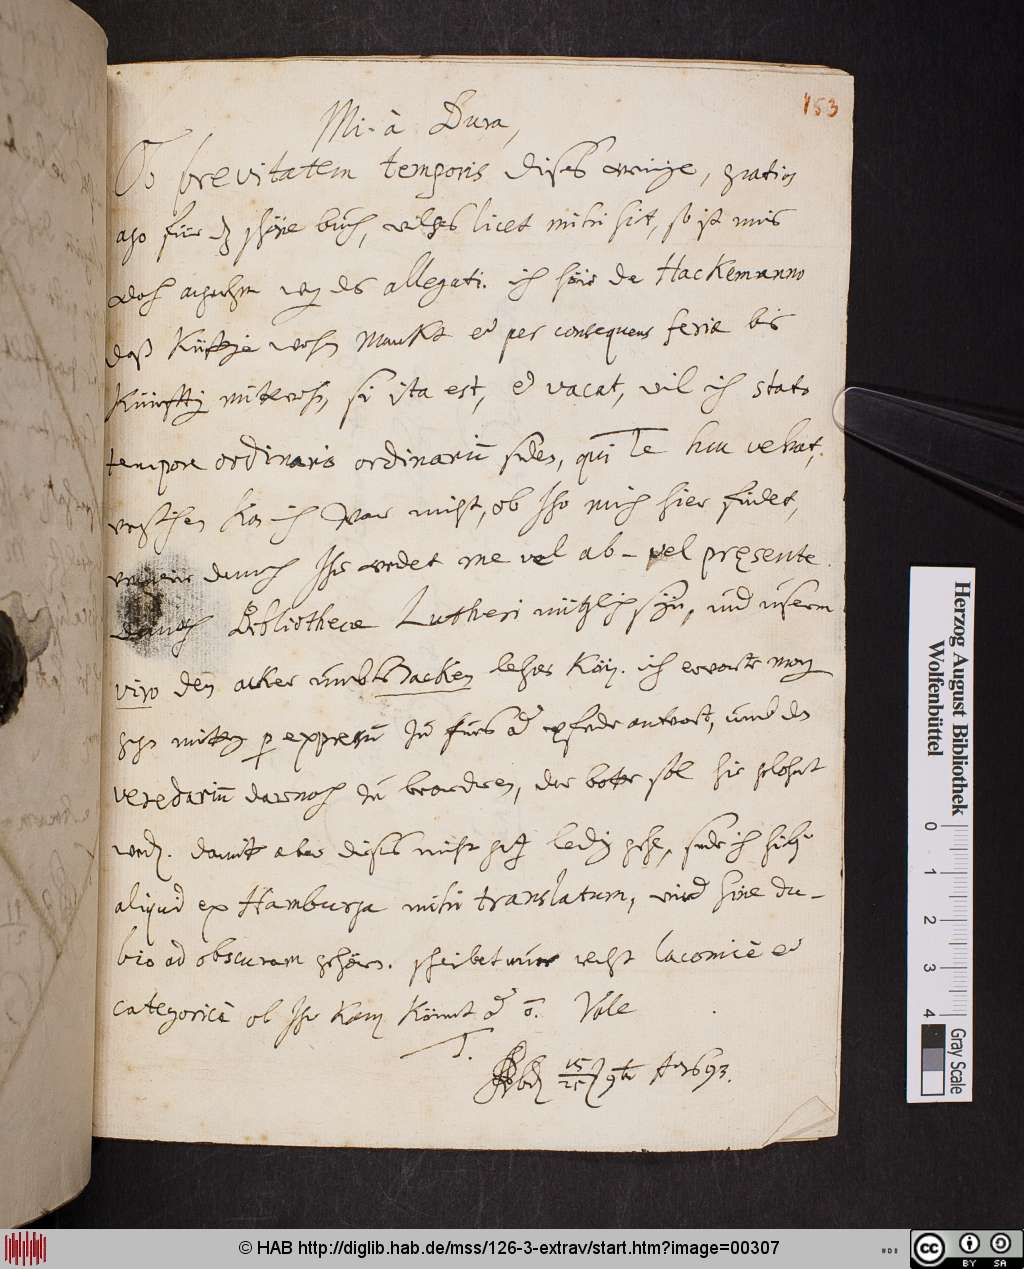 153
Mi. à Dura,
Ob brevitatem temporis dieses wenige, gratias
ago für dz schöne buch, welches licet mihi sit, so ist mirs
doch angenehm wg des allegati. ich höre de Hackemanno
daß Künftige wochen Markt et per consequens feriæ bis
Künfftig mitwoch, si ita est, et vacat, wil ich stato
tempore ordinario ordinariū senden, qui Te huc vehat,
ich zwar nicht, ob Ihr mich hier findet,
dennoch Ihr werdet me vel ab- vel pręsente
dennoch Bibliothecæ Lutheri nützlich seyn, und unserm
viro den acker umbthacken helfen Kön. ich erwarte morgen
gegen mittag p expressū antwort, umb den
veredariū darnach zu beordren, der botte sol hie gelohnt
werden. damit aber dieses nicht gantz ledig gehe, sende ich hiebey
aliquid ex Hamburga mihi translatum, wird sine du-
bio ad obscuram gehören. schreibet nur recht laconicè et
categoricè ob Ihr Kommen Könnt od' o. Vale
T.
15
25
9br Ao 1693.
Herzog August Bibliothek
Wolfenbüttel
0 1 2 3 4
Gray Scale
© HAB http://diglib.hab.de/mss/126-3-extrav/start.htm?image=00307
cc BY SA